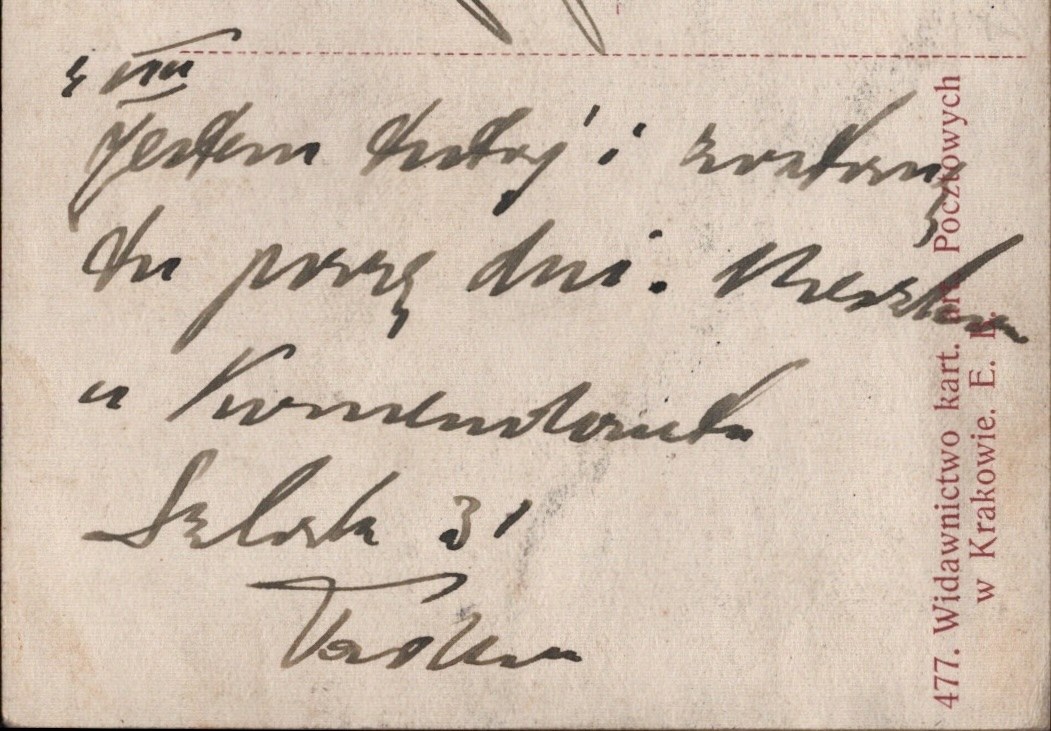 4 VIII
Jestem tutaj i zostanę
tu parę dni. Mieszkam
u Komendanta
Szlak 31
477. Widawnictwo kart. art. Pocztowych
w Krakowie. E. L.